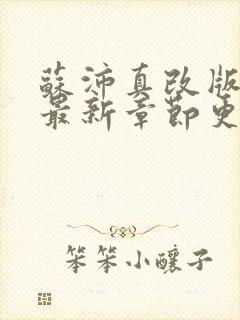 蘇沛真改版
最新章節更
笨笨小釀子